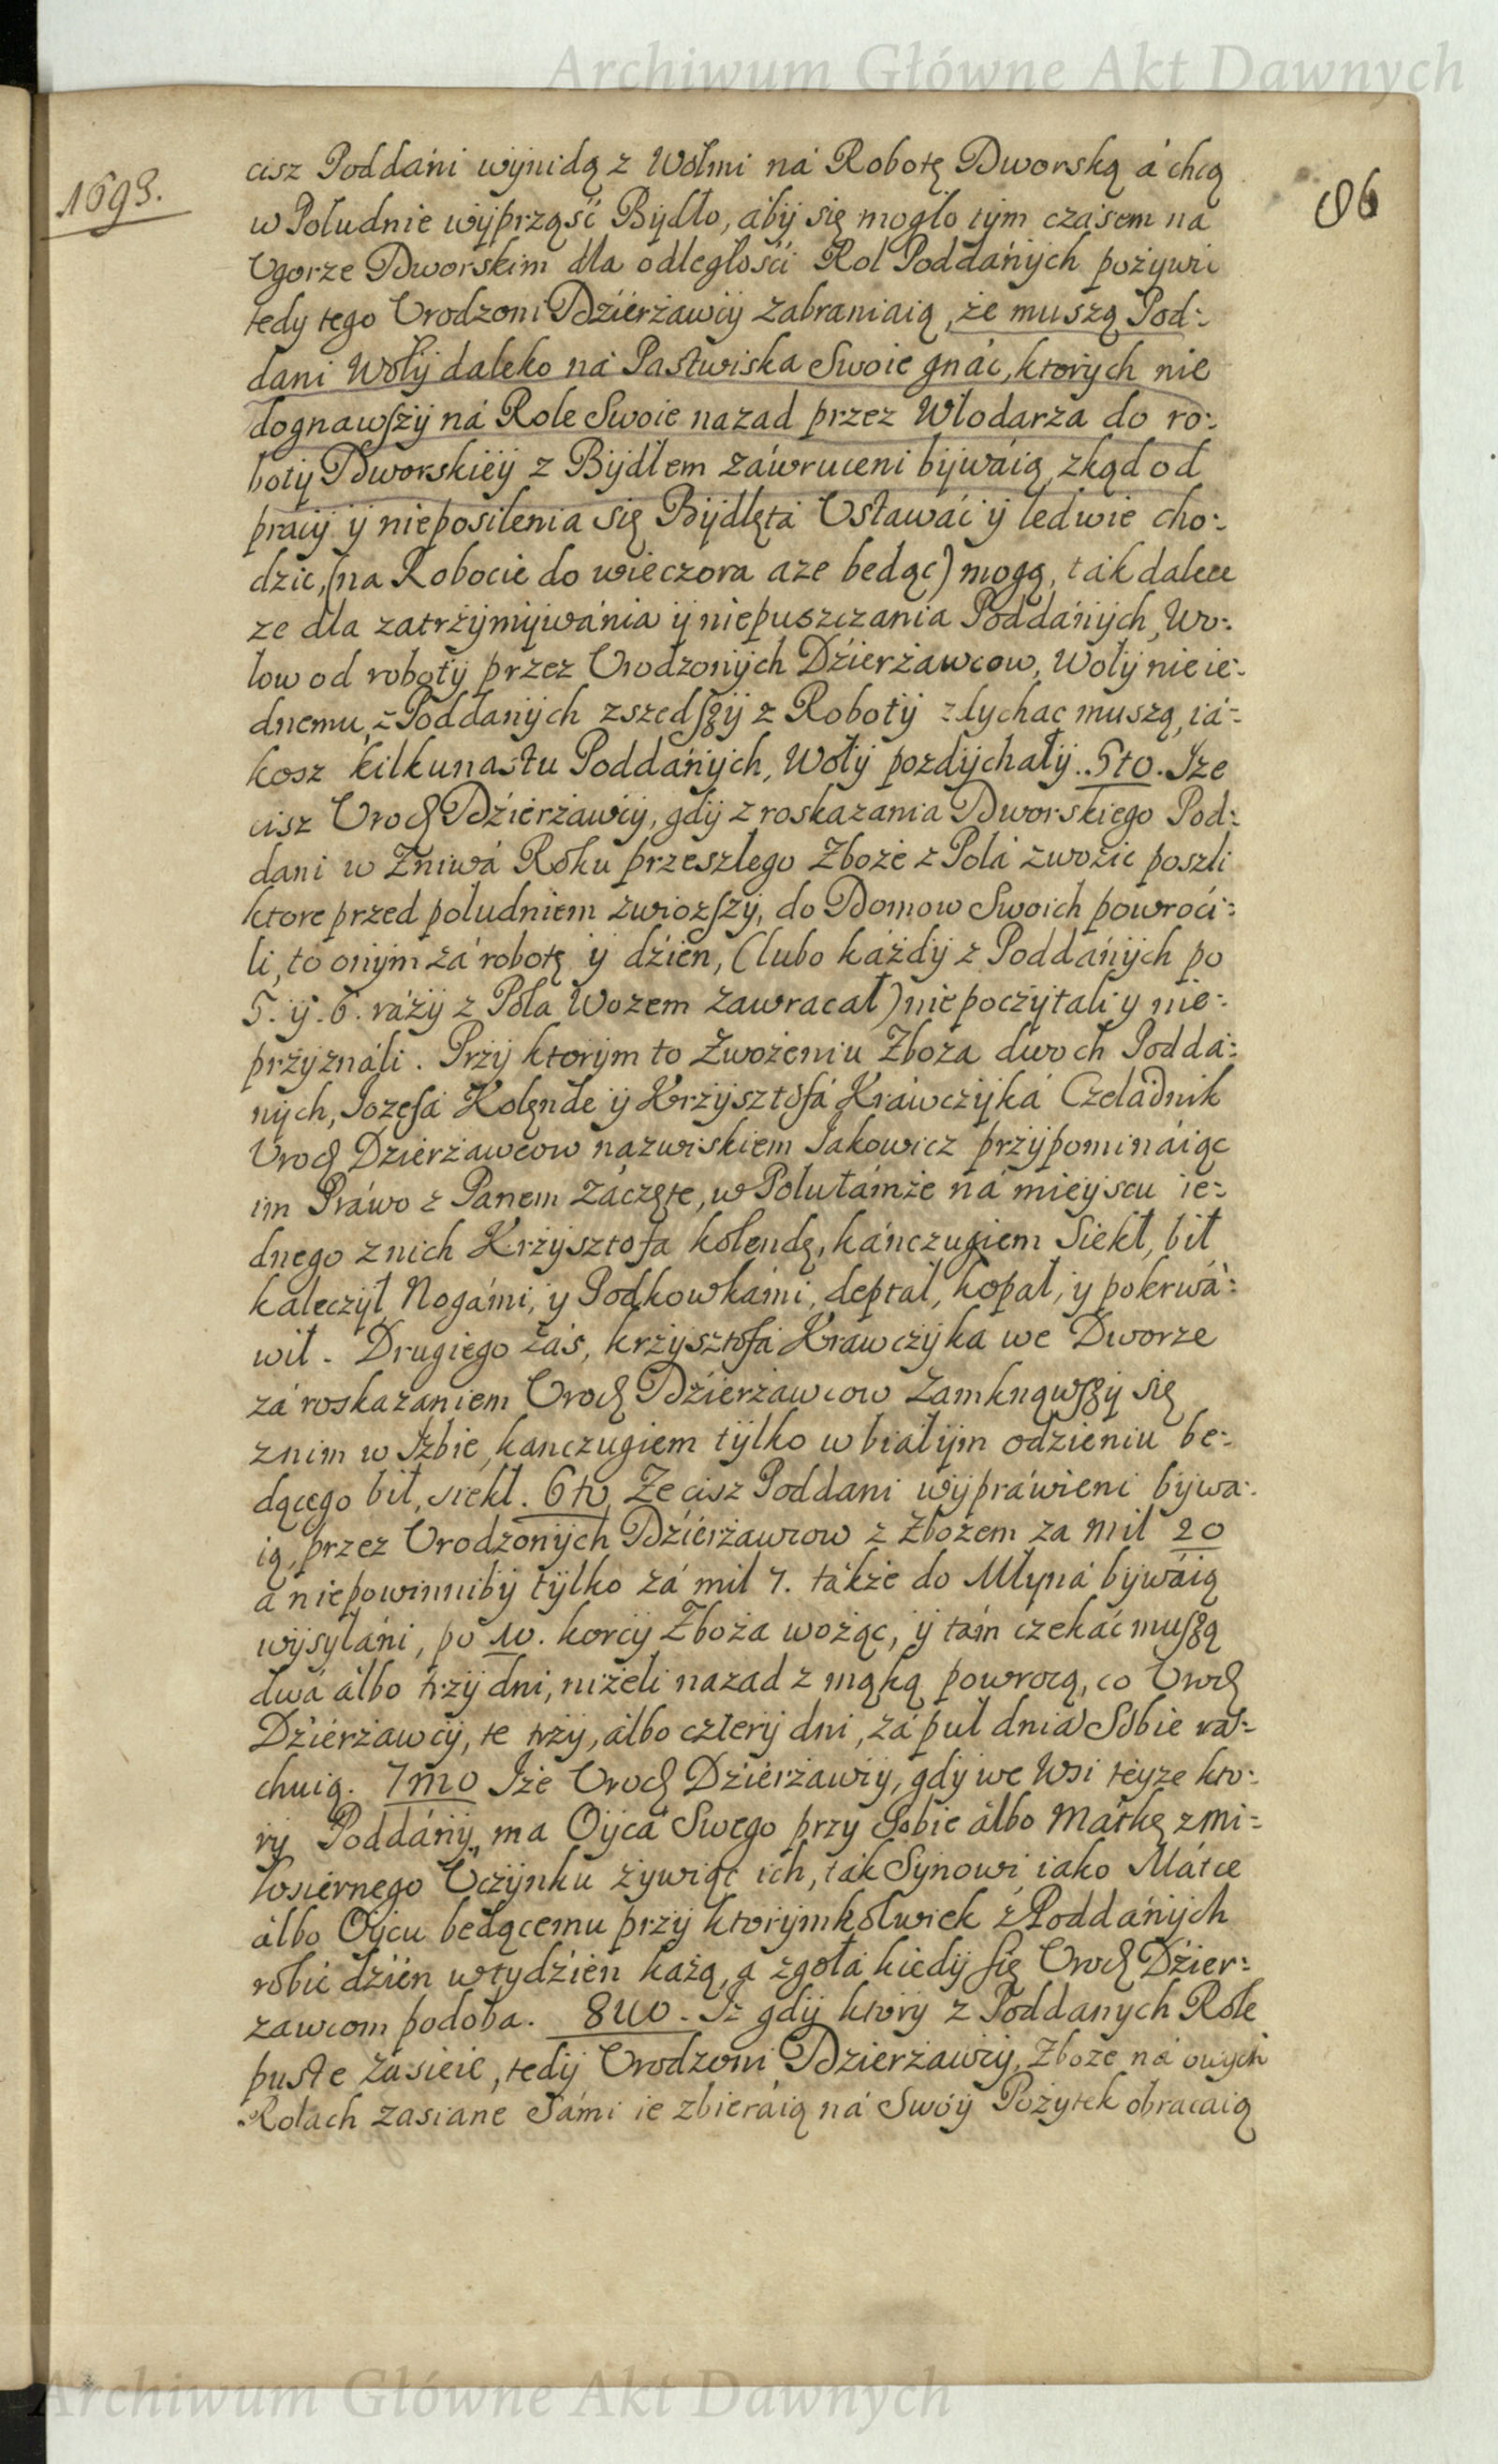 Archiwum Główne Akt Dawnych
1693.
96
cisz Poddáni wyinidą z Wołmi ná Robotę Dworską á chcą
w Południe wyprząść Bydło, áby się mogło tym czásem na
Ugorze Dworskim dla odległości Rol Poddánych pożywić
tedy tego Urodzoni Dzierżawcy zabraniaią, że muszą Pod:
dani Woły daleko ná Pastwiska Swoie gnáć, ktorych nie
dognawszy ná Role Swoie nazad przez Włodarza do ro:
boty Dworskiey z Bydłem záwruceni bywáią, zkąd od
pracy y nieposilenia się Bydlęta Ustawáć y ledwie cho:
dzic, (na Robocie do wieczora aze bedąc) mogą, ták dalece
ze dla zatrzymywánia y niepuszczania Poddánych, Wo:
low od roboty przez Urodzonych Dzierżawcow, Woły nie ie:
dnemu z Poddanych zszedszy z Roboty zdychac muszą, iá:
kosz kilkunastu Poddánych, Woły pozdycháły. 5to. Jże
cisz Urod Dzierżawcy, gdy z roskazania Dworskiego Pod:
dani w Żniwá Roku przeszłego Zboże z Polá zwozic poszli
ktore przed południem zwiozszy, do Domow Swoich powroci:
li, to onym zá robotę y dzien, (lubo káżdy z Poddánych po
5. y. 6. ráży z Pola Wozem zawracał) nie poczytali y nie:
przyználi. Przy ktorym to Zwożeniu Zboża dwoch Poddá:
nych, Jozefa Kolęnde y Krzysztofá Kráwczyká Czeladnik
Urod Dzierżawcow nazwiskiem Jakowicz przypomináiąc
im Práwo z Panem záczęte, w Polu támże ná mieyscu ie:
dnego z nich Krzysztofa kolendę, káńczugiem Siekł, bił
kaleczył, Nogámi, y Podkowkámi, deptał, kopał, y pokrwá:
wił. Drugiego záś, krzysztofá Krawczyka we Dworze
zá roskazaniem Urod Dzierżawcow Zamknąwszy się
znim w Jzbie, kanczugiem tylko w białym odzieniu be:
dącego bił, siekł. 6to Ze cisz Poddani wypráwieni bywa:
ią, przez Urodzonych Dzierżawcow z Zbożem za mil 20
á niepowinniby tylko zá mil 7. tákże do Młyná bywáią
wysyłáni, po 10. korcy Zboża wożąc, y tám czekáć muszą
dwá álbo trzy dni, niżeli nazad z mąką powrocą, co Urod
Dzierżawcy, te trzy, álbo cztery dni, zá puł dnia Sobie rá:
chuią. 7mo Jże Urod Dzierżawcy, gdy we Wsi teyże kto:
ry Poddány, ma Oyca Swego przy Sobie álbo Mátkę z mi:
łosiernego Uczynku żywiąc ich, ták Synowi iako Mátce
álbo Oycu bedącemu przy ktorymkolwiek z Poddánych
robić dzień w tydzień każą, a zgołá kiedy się Urod Dzier:
zawcom podoba. 8vo. Jz gdy ktory z Poddanych Role
puste zásieie, tedy Urodzeni Dzierżawcy, Zboże ná owych
Rolach zasiane Sámi ie zbieráią ná Swóy Pożytek obracaią
Archiwum Główne Akt Dawnych